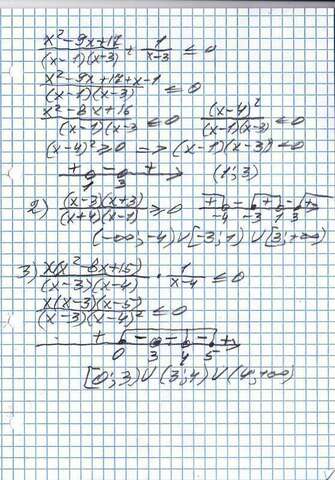 (x²-9x+17)/((x-1)(x-3)) + 1/(x-3) ≤ 0
(x²-9x+17+x-1)/((x-1)(x-3)) ≤ 0
(x²-8x+16)/((x-1)(x-3) ≤ 0 (x-4)²/((x-1)(x-3)) ≤ 0
(x-4)² ≥ 0 => (x-1)(x-3) < 0
+ - + 1 3 (1; 3)
2) ((x-3)(x+3))/((x+4)(x-1)) ≥ 0 + - + - + -4 -3 1 3
(-∞; -4) ∪ [-3; 1) ∪ [3; +∞)
3) x(x²-8x+15)/((x-3)(x-4)) · 1/(x-4) ≤ 0
x(x-3)(x-5)/((x-3)(x-4)² ≤ 0
+ - - - + 0 3 4 5
[0; 3) ∪ (3; 4) ∪ (4; +∞)